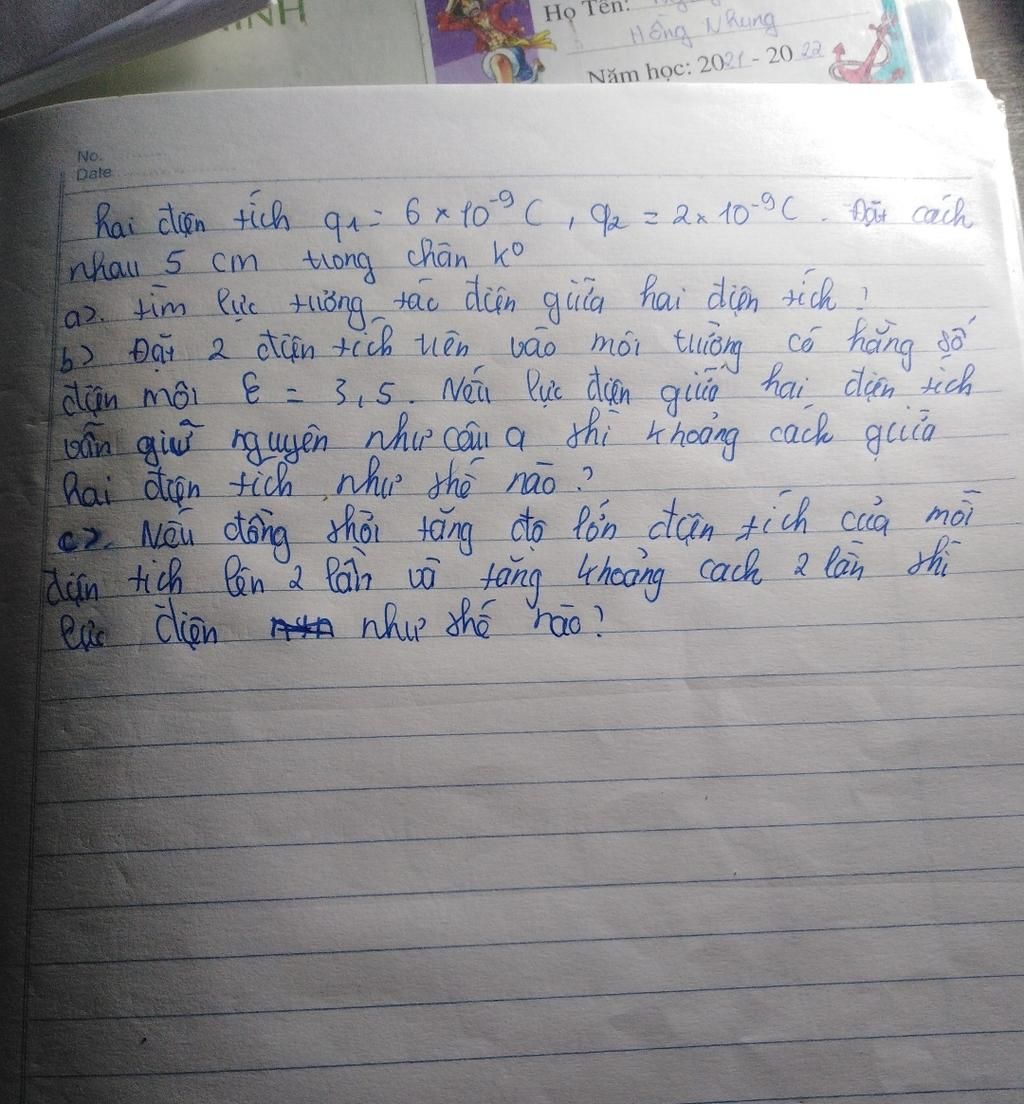 INH
Họ Tên:
Hồng Nhung
Năm học: 2021 - 2022
No.
Date
hai điện tích q1 = 6 × 10⁻⁹ C , q2 = 2 × 10⁻⁹ C . Đặt cách
nhau 5 cm trong chân k⁰
a>. tìm lực tương tác điện giữa hai điện tích ?
b> Đặt 2 điện tích trên vào môi trường có hằng số
điện môi ε = 3,5. Nếu lực điện giữa hai điện tích
vẫn giữ nguyên như câu a thì khoảng cách giữa
hai điện tích như thế nào ?
c>. Nếu đồng thời tăng độ lớn điện tích của mỗi
điện tích lên 2 lần và tăng khoảng cach 2 lần thì
lực điện như thế nào ?